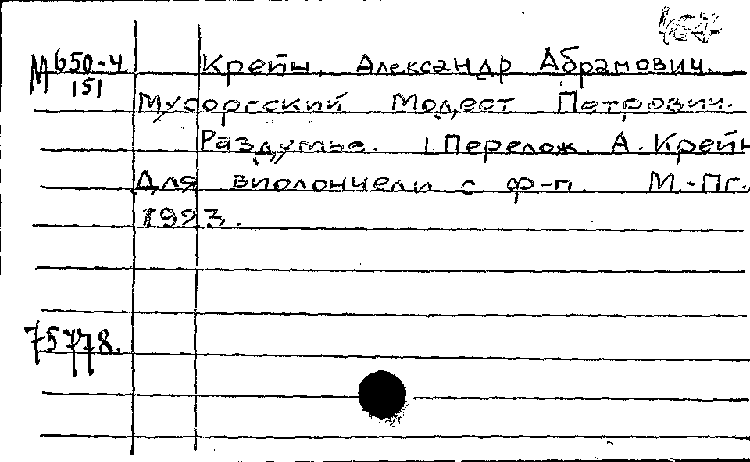 М 650-4
151
Крейн, Александр Абрамович.
Мусоргский Модест Петрович.
Раздумье. Перелож. А. Крейн
Для виолончели с ф-п. М.-Пг.
1923.
75778.